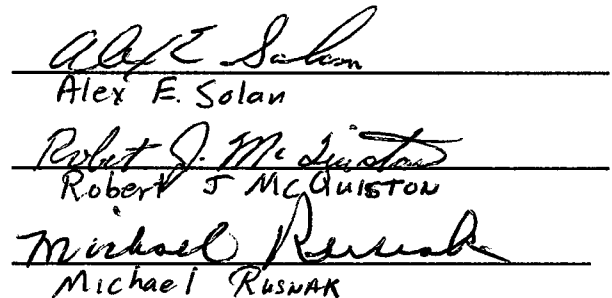 Alex E Solan
Alex E. Solan
Robert J. McQuiston
Robert J McQUISTON
Michael Rusnak
Michael RUSNAK